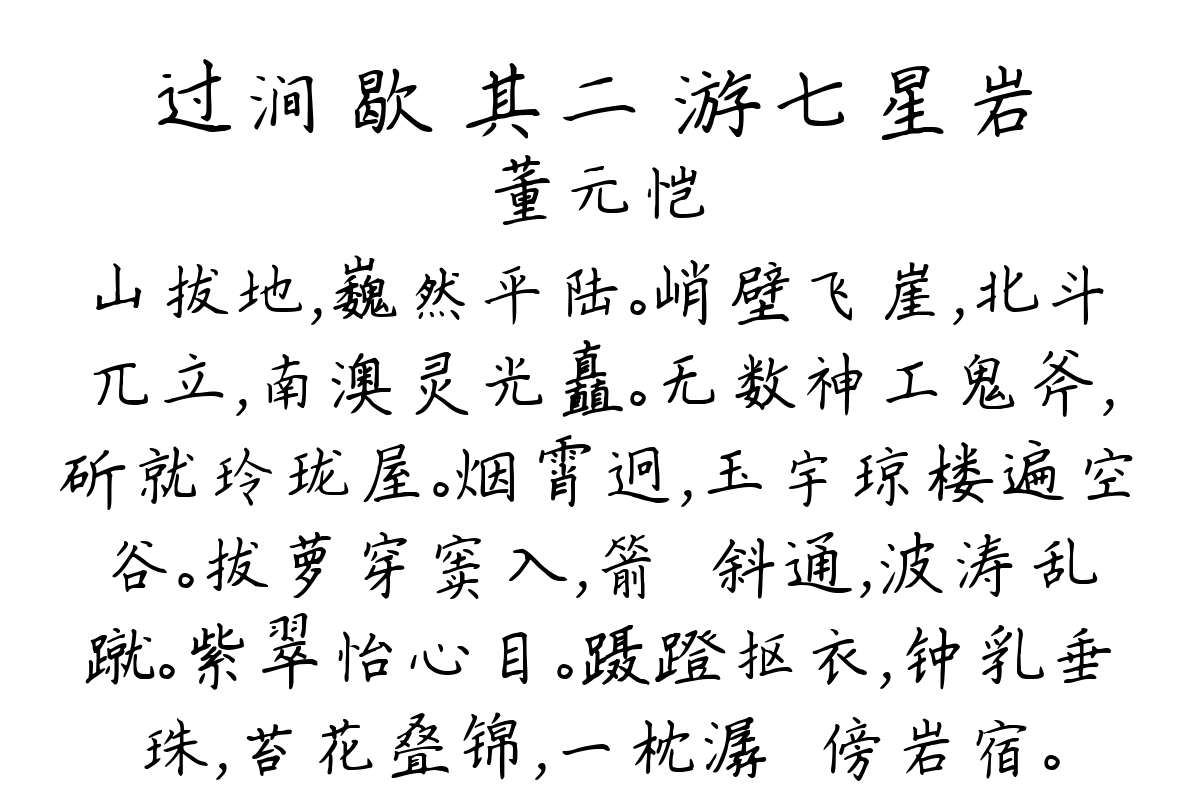 过涧歇 其二 游七星岩
董元恺
山拔地,巍然平陆。峭壁飞崖,北斗
兀立,南澳灵光矗。无数神工鬼斧,
斫就玲珑屋。烟霄迥,玉宇琼楼遍空
谷。拔萝穿窦入,箭 斜通,波涛乱
蹴。紫翠怡心目。蹑蹬抠衣,钟乳垂
珠,苔花叠锦,一枕潺 傍岩宿。